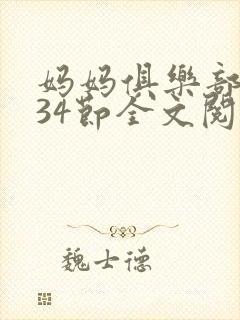 妈妈俱樂部
34节全文閱
魏士德